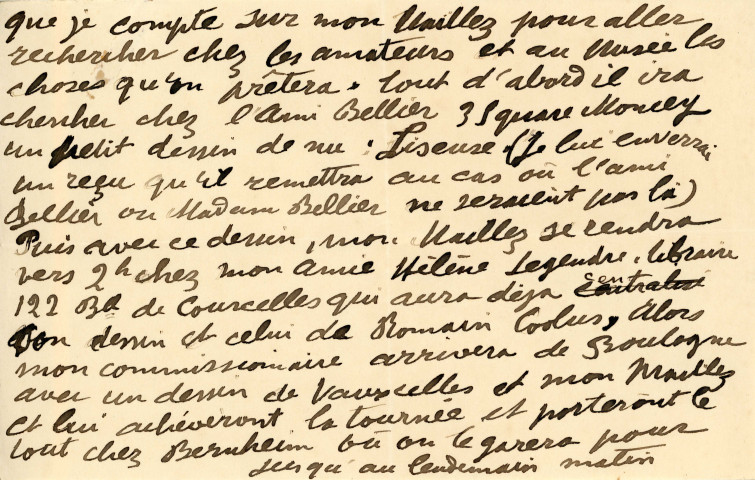 que je compte sur mon Maillez pour aller
rechercher chez les amateurs et au Musée les
choses qu'on prêtera. tout d'abord il ira
chercher chez l'Ami Bellier 3 Square Moncey
un petit dessin de nu : Liseuse. (Je lui enverrai
un reçu qu'il remettra au cas où l'ami
Bellier ou Madame Bellier ne seraient pas là)
Puis avec ce dessin, mon Maillez se rendra
vers 2h chez mon amie Hélène Legendre, libraire
122 Bd de Courcelles qui aura déjà
son dessin et celui de Romain Coolus, Alors
mon commissionnaire arrivera de Boulogne
avec un dessin de Vauxcelles et mon Maillez
et lui achèveront la tournée et porteront le
tout chez Bernheim où on le garera pour
jusqu'au lendemain matin